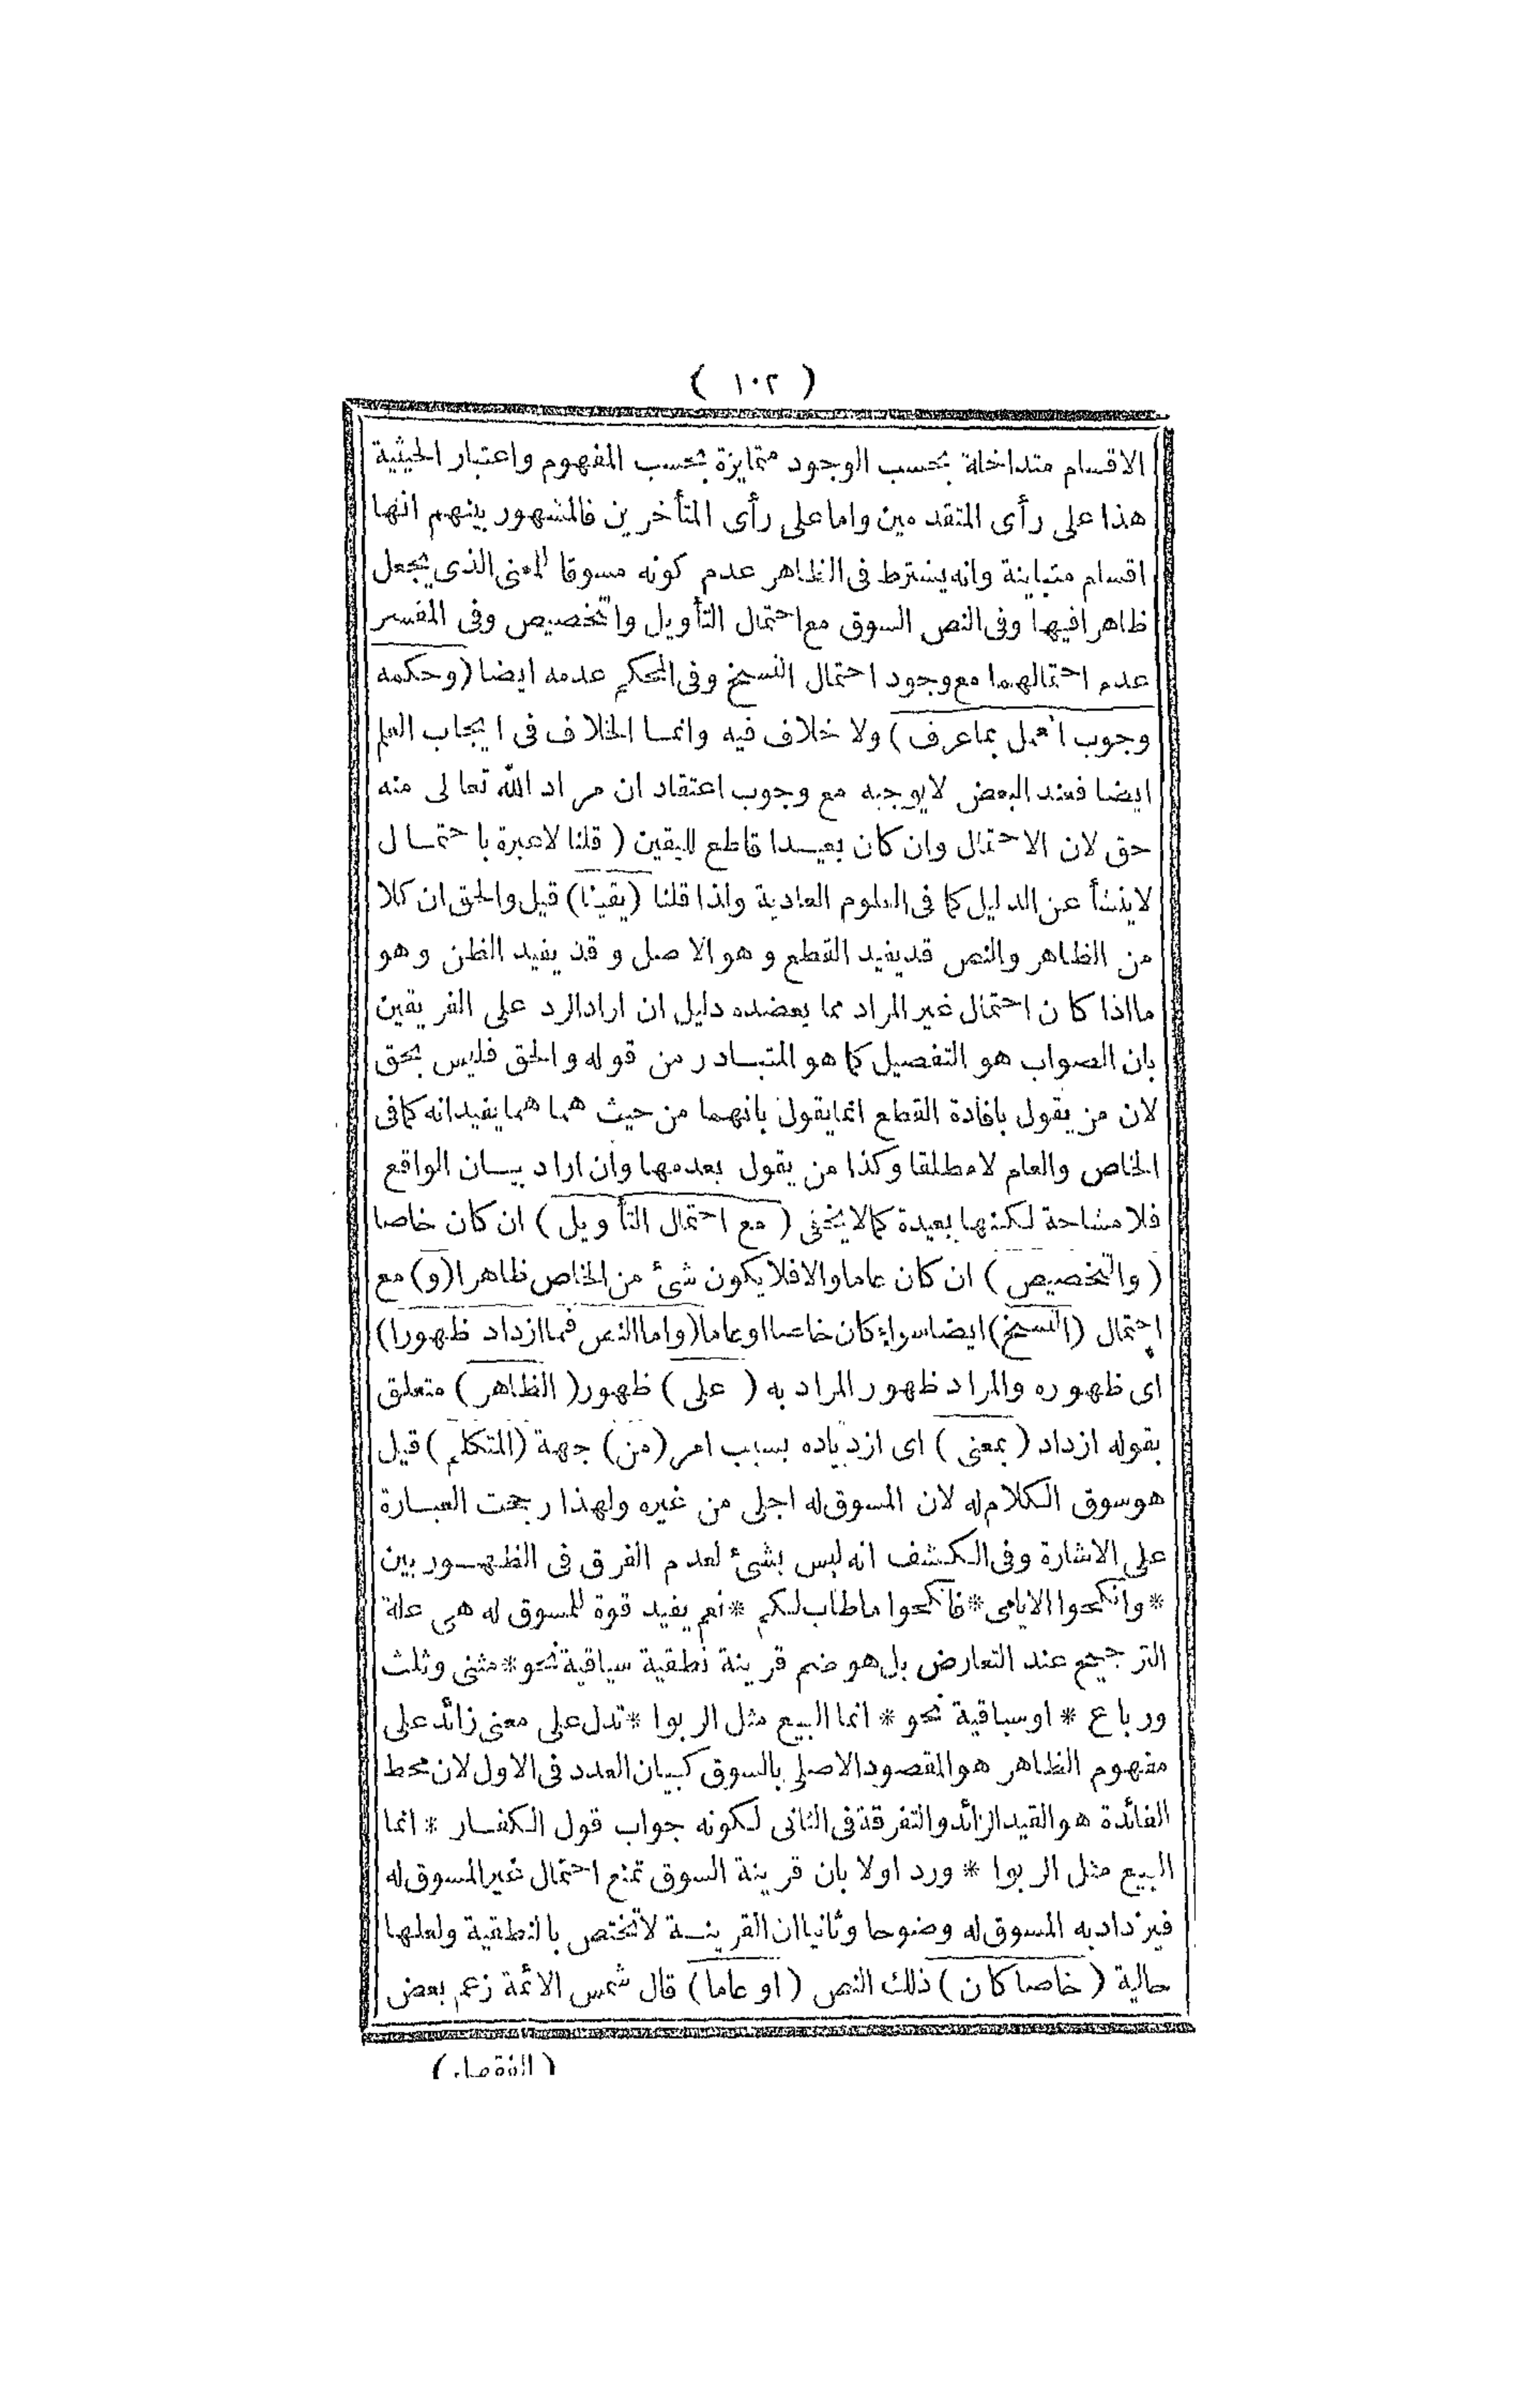 ( ١٠٢ )
الاقسام متداخلة بحسب الوجود متمايزة بحسب المفهوم واعتبار الحيثية
هذا على رأى المتقدمين واما على رأى المتأخرين فالمشهور بينهم انها
اقسام متباينة وانه يشترط فى الظاهر عدم كونه مسوقا للمعنى الذى يجعل
ظاهرا فيها وفى النص السوق مع احتمال التأويل والتخصيص وفى المفسر
عدم احتمالهما مع وجود احتمال النسخ وفى المحكم عدمه ايضا (وحكمه
وجوب العمل بما عرف) ولا خلاف فيه وانما الخلاف فى ايجاب العلم
ايضا فعند البعض لا يوجبه مع وجوب اعتقاد ان مراد الله تعالى منه
حق لان الاحتمال وان كان بعيدا قاطع لليقين ( قلنا لاعبرة باحتمال
لاينشأ عن الدليل كما فى العلوم العادية ولذا قلنا (يقينا) قيل والحق ان كلا
من الظاهر والنص قد يفيد القطع وهو الاصل وقد يفيد الظن وهو
ما اذا كان احتمال غير المراد مما يعضده دليل ان اراد الرد على الفريقين
بان الصواب هو التفصيل كما هو المتبادر من قوله والحق فليس بحق
لان من يقول بافادة القطع انما يقول بانهما من حيث هما هما يفيدانه كما فى
الخاص والعام لا مطلقا وكذا من يقول بعدمها وان اراد بيان الواقع
فلا مشاحة لكنها بعيدة كما لا يخفى ( مع احتمال التأويل ) ان كان خاصا
( والتخصيص ) ان كان عاما والا فلا يكون شئ من الخاص ظاهرا (و) مع
احتمال (النسخ) ايضا سواء كان خاصا او عاما (واما النص فما ازداد ظهورا)
اى ظهوره والمراد ظهور المراد به ( على ) ظهور ( الظاهر ) متعلق
بقوله ازداد ( بمعنى ) اى ازدياده بسبب امر (من) جهة (المتكلم) قيل
هو سوق الكلام له لان المسوق له اجلى من غيره ولهذا رجحت العبارة
على الاشارة وفى الكشف انه ليس بشئ لعدم الفرق فى الظهور بين
* وانكحوا الايامى * فانكحوا ما طاب لكم * نعم يفيد قوة للمسوق له هى علة
الترجيح عند التعارض بل هو ضم قرينة نطقية سياقية نحو * مثنى وثلث
ورباع * او سباقية نحو * انما البيع مثل الربوا * تدل على معنى زائد على
مفهوم الظاهر هو المقصود الاصلى بالسوق كبيان العدد فى الاول لان محط
الفائدة هو القيد الزائد والتفرقة فى الثانى لكونه جواب قول الكفار * انما
البيع مثل الربوا * ورد اولا بان قرينة السوق تمنع احتمال غير المسوق له
فيزداد به المسوق له وضوحا وثانيا ان القرينة لا تختص بالنطقية ولعلها
حالية ( خاصا كان ) ذلك النص ( او عاما ) قال شمس الائمة زعم بعض
( الفقهاء )